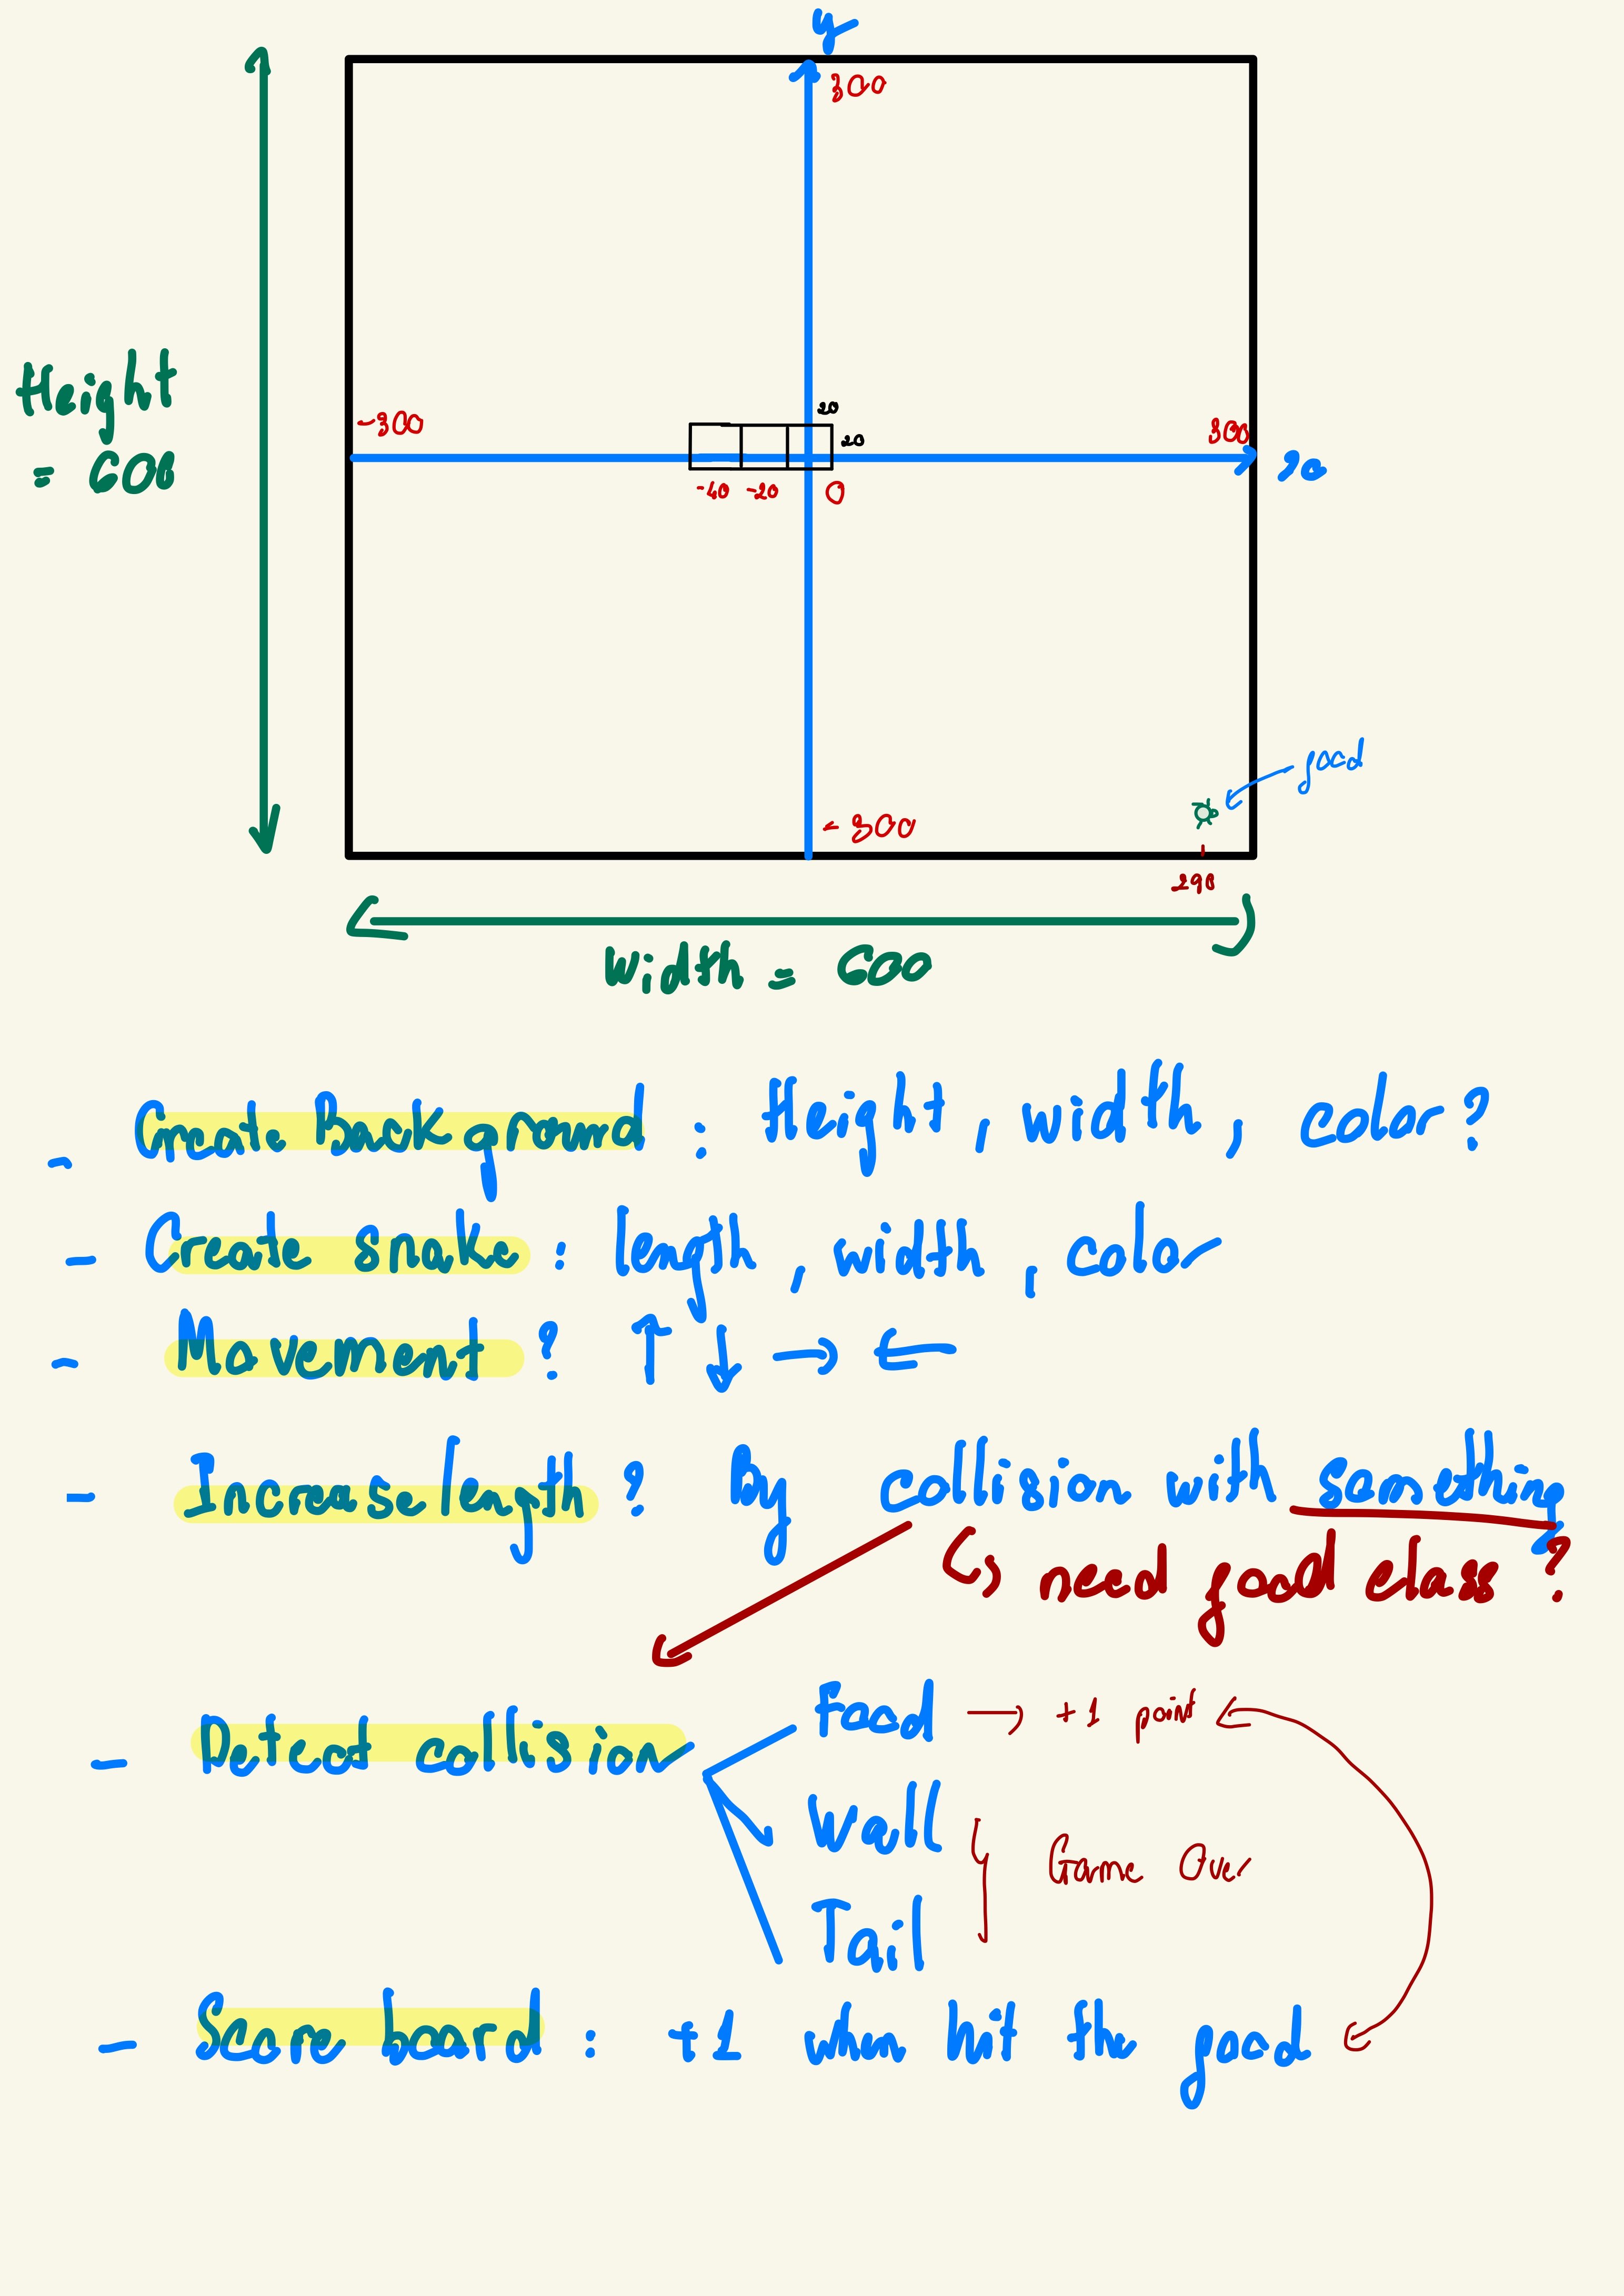 y
300
Height
= 600
-300
20
20
300
x
-40 -20 0
food
-300
290
Width = 600
- Create Background : Height, width, color?
- Create snake : length, width, color
- Movement ? ↑ ↓ → ←
- Increase length ? By collision with something
↳ need food class ?
- Detect collision
Food → +1 point
Wall
Game Over
Tail
- Score board : +1 when hit the food